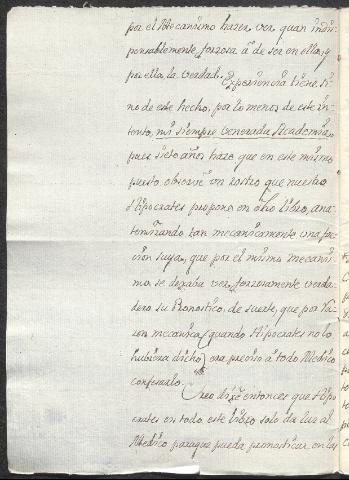 por el Mecanismo hazer ver, quan indis
pensablemente, forzosa à de ser en ella, y
por ella, la verdad.
Experiencia tiene, si
no de este hecho, por lo menos de este in
tento, mi siempre venerada Academia,
pues siete años haze que en este mismo
puesto, observè un rostro que nuestro
Hipocrates propone en dho libro, ana
tomizando tan mecanicamente una fac
cion suya, que por el mismo mecanis
mo se dexaba ver, forzosamente verda
dero su Pronostico, de suerte, que por ra
zon mecanica (quando Hipocrates no lo
hubiera dicho) era preciso à todo Medico
confesarlo.
Pero dixe entonces que Hipo
crates en todo este libro, solo da luz al
Medico paraque pueda pronosticar en las